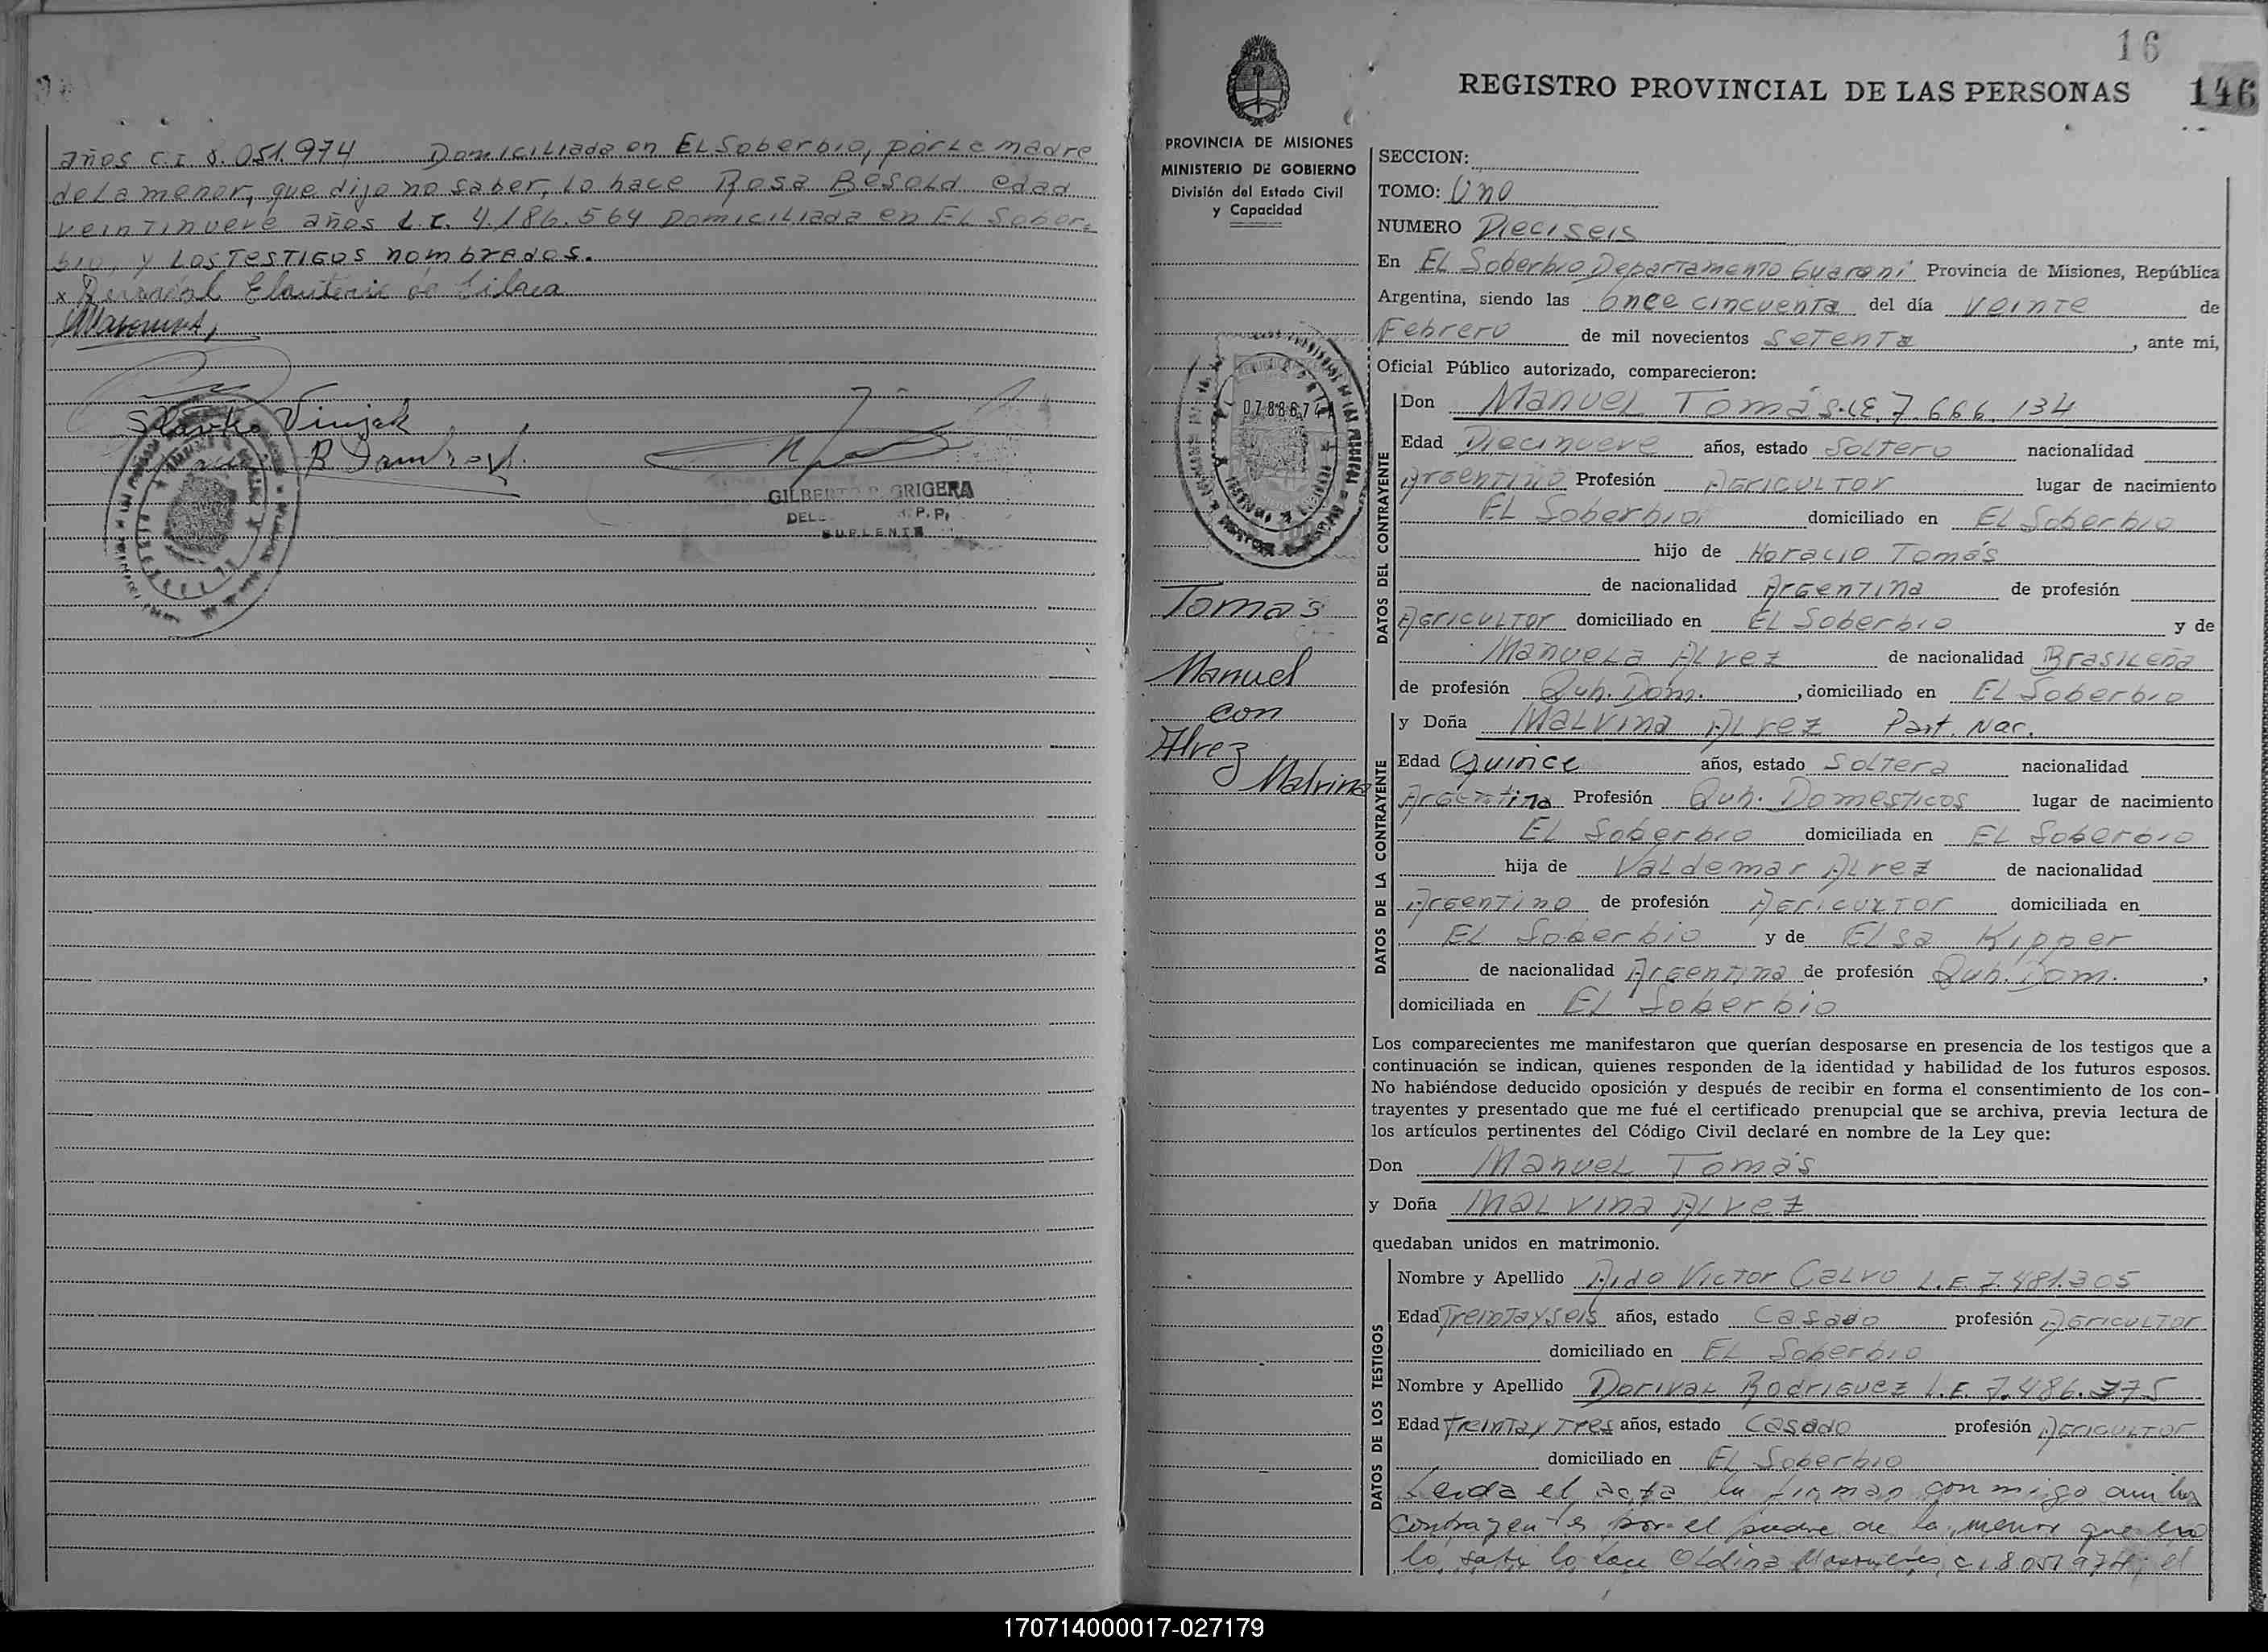 años C.I 8.051.974 Domiciliada en EL Soberbio, por La madre
de La menor, que dijo no saber, Lo hace Rosa Besold edad
veintinueve años L.C. 4.186.564 Domiciliada en EL Sober-
bio, y Los TesTIGOS nombrados.
x
Slavko Vinjak
GILBERTO R. GRIGERA
SUPLENTE
16
REGISTRO PROVINCIAL DE LAS PERSONAS 146
PROVINCIA DE MISIONES
MINISTERIO DE GOBIERNO
División del Estado Civil
y Capacidad
Tomás
Manuel
con
Alvez
Malvina
SECCION:
TOMO: Uno
NUMERO Dieciseis
En EL Soberbio Departamento Guaraní Provincia de Misiones, República
Argentina, siendo las once cincuenta del día veinte de
Febrero de mil novecientos Setenta, ante mí,
Oficial Público autorizado, comparecieron:
DATOS DEL CONTRAYENTE
Don Manuel Tomás 7.666.134
Edad Diecinueve años, estado Soltero nacionalidad
Argentino Profesión Agricultor lugar de nacimiento
EL Soberbio domiciliado en EL Soberbio
hijo de Horacio Tomás
de nacionalidad Argentina de profesión
Agricultor domiciliado en EL Soberbio y de
Manuela Alvez de nacionalidad Brasileña
de profesión Queh. Dom., domiciliado en EL Soberbio
DATOS DE LA CONTRAYENTE
y Doña Malvina Alvez Part. Nac.
Edad Quince años, estado Soltera nacionalidad
Argentina Profesión Queh. Domesticos lugar de nacimiento
EL Soberbio domiciliada en EL Soberbio
hija de Valdemar Alvez de nacionalidad
Argentino de profesión Agricultor domiciliada en
EL Soberbio y de Elsa Kipper
de nacionalidad Argentina de profesión Queh. Dom.,
domiciliada en EL Soberbio
Los comparecientes me manifestaron que querían desposarse en presencia de los testigos que a
continuación se indican, quienes responden de la identidad y habilidad de los futuros esposos.
No habiéndose deducido oposición y después de recibir en forma el consentimiento de los con-
trayentes y presentado que me fué el certificado prenupcial que se archiva, previa lectura de
los artículos pertinentes del Código Civil declaré en nombre de la Ley que:
Don Manuel Tomás
y Doña Malvina Alvez
quedaban unidos en matrimonio.
DATOS DE LOS TESTIGOS
Nombre y Apellido Victor Calvo L.E. 7.481.305
Edad Treinta y seis años, estado Casado profesión Agricultor
domiciliado en EL Soberbio
Nombre y Apellido Dorival Rodriguez L.E. 7.486.375
Edad treinta y tres años, estado Casado profesión Agricultor
domiciliado en EL Soberbio
Leida el acta la firman conmigo ambos
contrayentes por el padre de la menor que no
lo sabe lo hace Oldina C.I 8.051.974; el
170714000017-027179